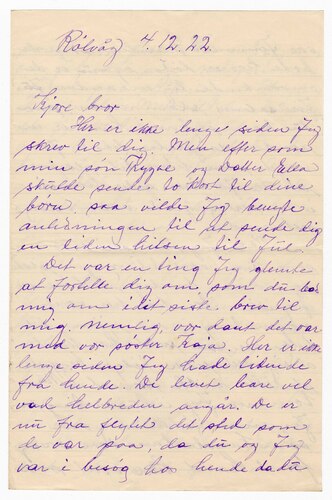 Rölvåg 4.12.22.
Kjöre bror
Her er ikke lenge siden Jeg
skrev til dig. Men efter som
min sön Trygve og Datter Ella
skulde sende to kort til dine
born, saa vilde Jeg benytte
anledningen til at sende dig
en liden hilsen til Jül.
Det var en ting Jeg glemte
at fortelle dig om, som dü bad
mig om i dit siste brev til
mig, nemlig, vor dant det var
med vor söster Kaja. Her er ikke
lenge siden Jeg hade tidende
fra hende. De livet bare vel
vad helbreden angår. De er
nü fra flyttet det sted som
de var paa, da dü og Jeg
var i besøg hos hende da dü